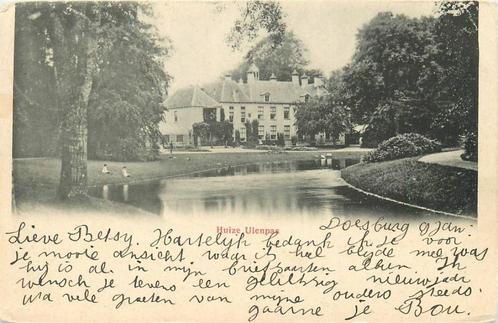 Huize Ulenpas
Doesburg 9 Jan.
Lieve Betsy. Hartelijk bedank ik je voor
je mooie ansicht waar ik heel blijde mee was
hij is al in mijn briefkaarten album. Ik
wensch je tevens een gelukkig nieuwjaar
met vele groeten van mijne ouders steeds.
gaarne je Bou.